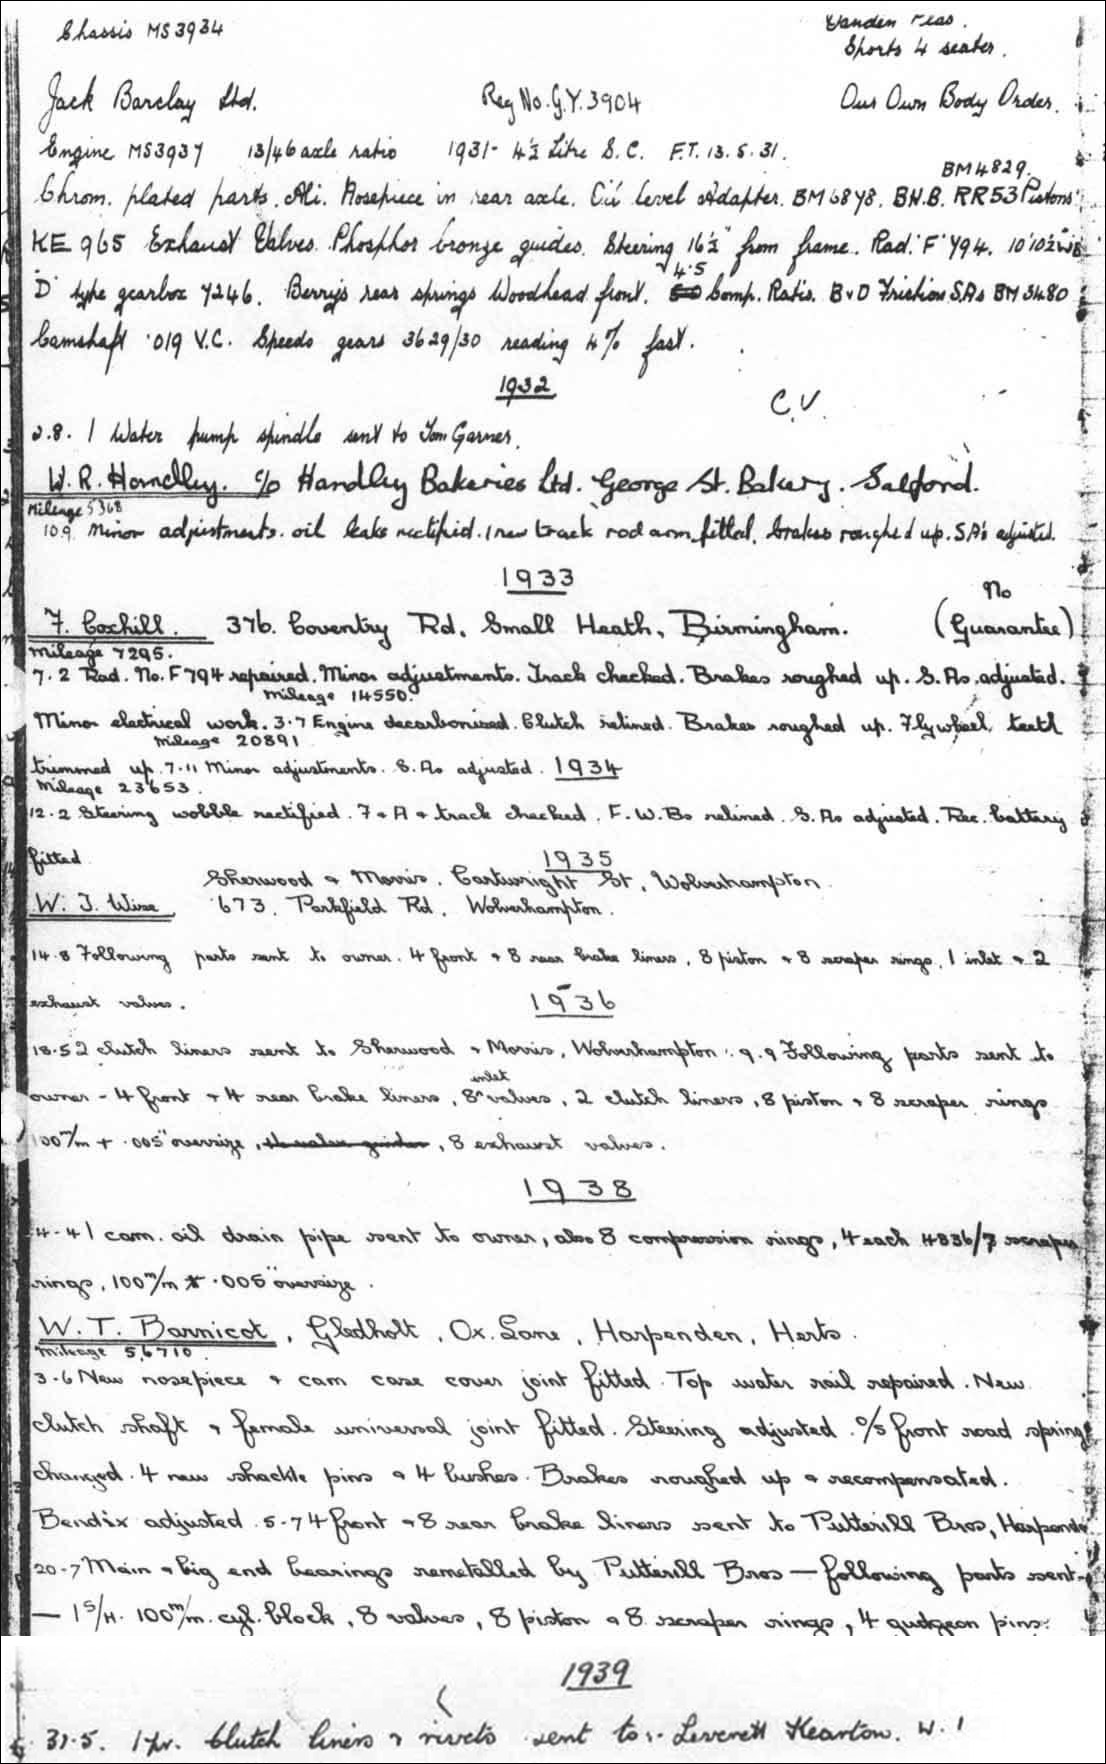 Chassis MS3934
Vanden Plas.
Sports 4 seater.
Jack Barclay Ltd. Reg No. G.Y. 3904 Our Own Body Order.
Engine MS3937 13/46 axle ratio 1931 - 4½ Litre S.C. F.T. 13.5.31.
BM4829.
Chrom. plated parts. Ali. Nosepiece in rear axle. Oil level Adapter. BM6878. BN.B. RR53 Pistons
KE 965 Exhaust Valves. Phosphor bronze guides. Steering 16½" from frame. Rad. 'F' 794. 10'10½" WB
4.5
'D' type gearbox 7246. Berry's rear springs Woodhead front. Comp. Ratio. B & D Friction S.As BM 3480
Camshaft .019 V.C. Speedo gears 3629/30 reading 4% fast.
1932
C.V.
2.8. 1 Water pump spindle sent to Tom Garner.
W. R. Handley. c/o Handley Bakeries Ltd. George St. Bakery. Salford.
Mileage 5368
10.9 Minor adjustments. oil leaks rectified. 1 new track rod arm fitted. brakes roughed up. S.A's adjusted.
1933
No
F. Coxhill. 376. Coventry Rd, Small Heath, Birmingham. (Guarantee)
Mileage 7295.
7.2 Rad. No. F794 repaired. Minor adjustments. Track checked. Brakes roughed up. S. As. adjusted.
Mileage 14550.
Minor electrical work. 3.7 Engine decarbonised. Clutch relined. Brakes roughed up. Flywheel teeth
Mileage 20891
trimmed up. 7.11 Minor adjustments. S. As adjusted. 1934
Mileage 23653.
12.2 Steering wobble rectified. F & A & track checked. F. W. Bs relined. S. As adjusted. Rec. battery
fitted 1935
Sherwood & Morris. Cartwright St, Wolverhampton.
W. J. Wise 673, Parkfield Rd, Wolverhampton.
14.8 Following parts sent to owner. 4 front & 8 rear brake liners, 8 piston & 8 scraper rings, 1 inlet & 2
exhaust valves. 1936
18.5 2 clutch liners sent to Sherwood & Morris, Wolverhampton. 9.9 Following parts sent to
inlet
owner - 4 front & 4 rear brake liners, 8 valves, 2 clutch liners, 8 piston & 8 scraper rings
100m/m + .005" oversize, , 8 exhaust valves.
1938
4.4 1 cam. oil drain pipe sent to owner, also 8 compression rings, 4 each 4836/7 scraper
rings, 100m/m + .005" oversize.
W. T. Barnicot, Gledholt, Ox. Lane, Harpenden, Herts.
Mileage 56710
3.6 New nosepiece & cam case cover joint fitted. Top water rail repaired. New
clutch shaft & female universal joint fitted. Steering adjusted. O/S front road spring
changed. 4 new shackle pins & 4 bushes. Brakes roughed up & recompensated.
Bendix adjusted. 5.7 4 front & 8 rear brake liners sent to Putterill Bros, Harpenden
20.7 Main & big end bearings remetalled by Putterill Bros — following parts sent -
— 1 S/H. 100m/m. cyl. block, 8 valves, 8 piston & 8 scraper rings, 4 gudgeon pins.
1939
31.5. 1 pr. Clutch liners & rivets sent to:- Leverett Kearton. W. 1